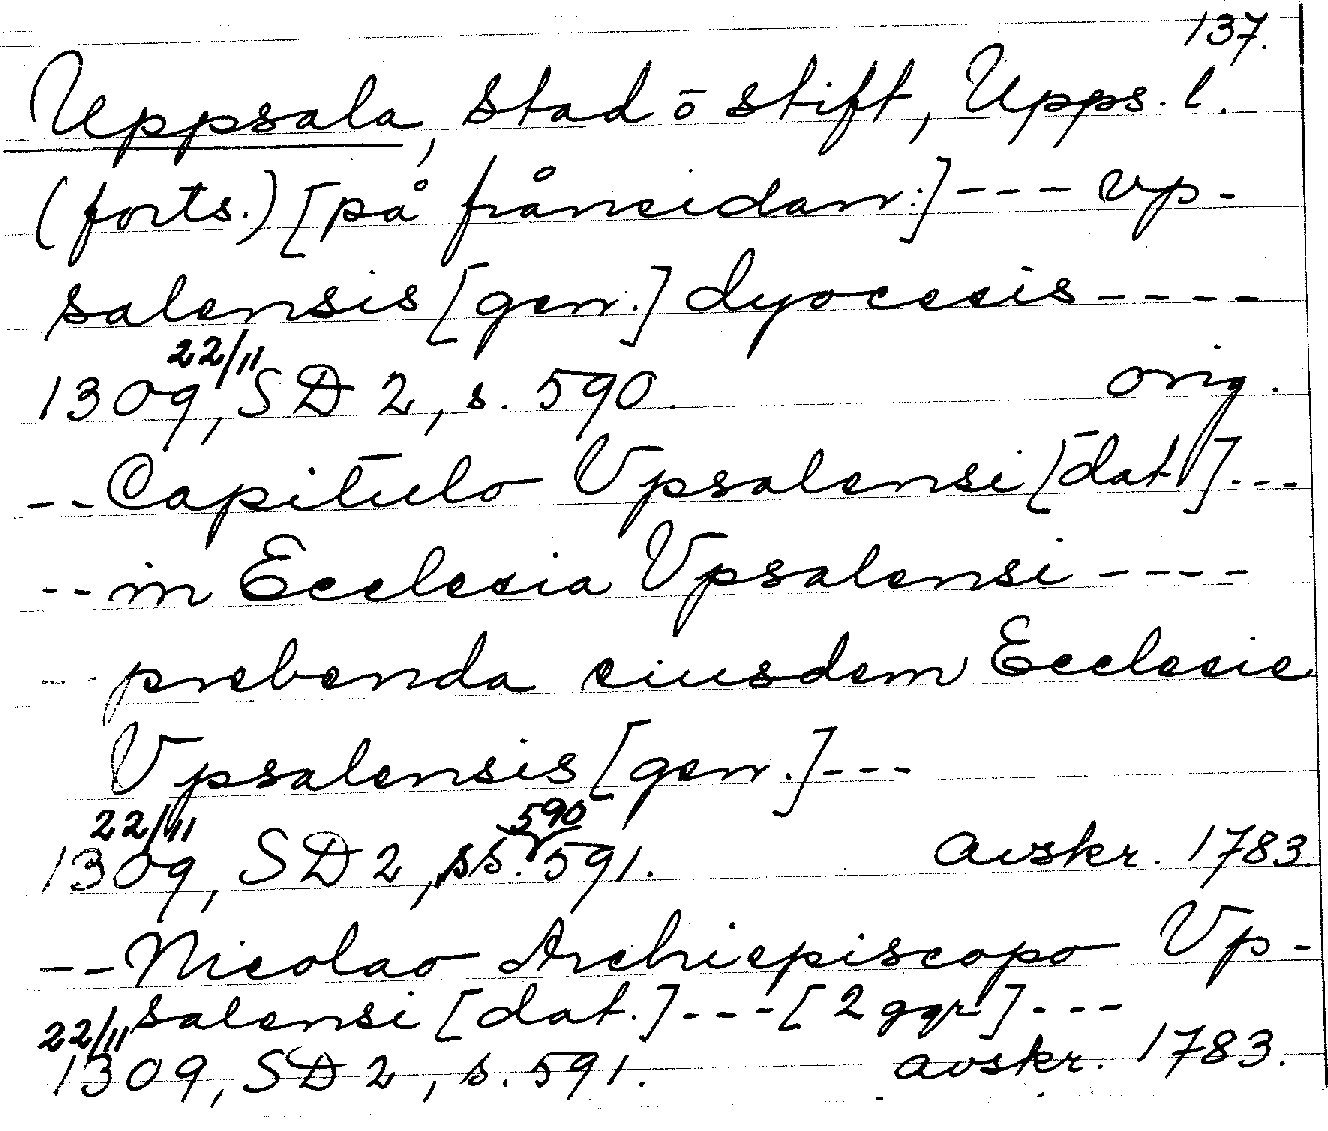 137.
Uppsala, stad ō stift, Upps. l.
(forts.) [på frånsidan:] --- vp-
salensis [gen.] dyocesis ----
22/11
1309, SD 2, s. 590. orig.
-- Capitulo Vpsalensi [dat.] ---
-- in Ecclesia Vpsalensi ----
-- prebenda eiusdem Ecclesie
Vpsalensis [gen.] ---
22/11 590
1309, SD 2, ss. 591. avskr. 1783
-- Nicolao Archiepiscopo Vp-
salensi [dat.] --- [2 ggr] ---
22/11
1309, SD 2, s. 591. avskr. 1783.